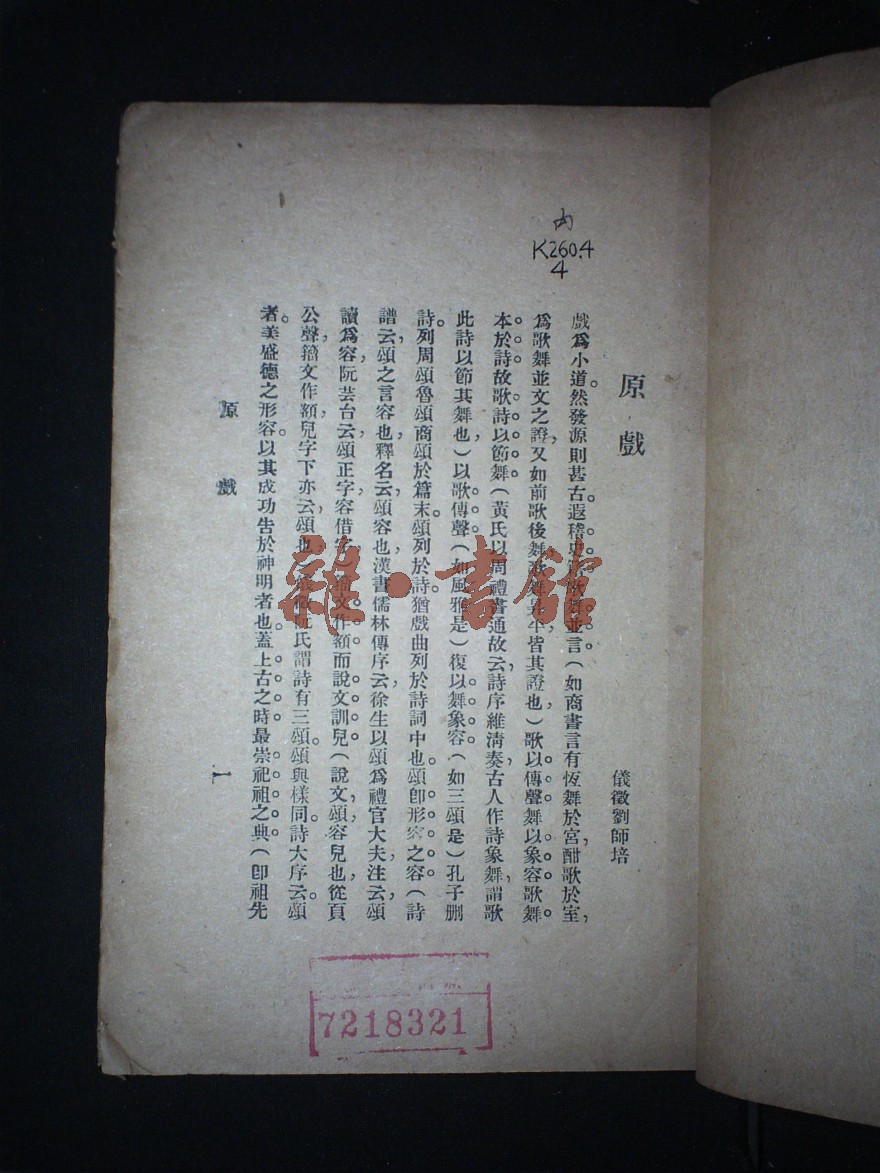 内
K260.4
4
原戲
儀徵劉師培
戲爲小道。然發源則甚古。遐稽史歌舞並言(如商書言有恆舞於宮,酣歌於室,
爲歌舞並文之證,又如前歌後舞,歌舞皆其證也)歌以傳聲,舞以象容。歌舞
本於詩,故歌詩以節舞。(黃氏以周禮書通故云,詩序維清奏古人作詩象舞,謂歌
此詩以節其舞也,)以歌傳聲。(如風雅是)復以舞象容。(如三頌是)孔子刪
詩。列周頌魯頌商頌於篇末。頌列於詩。猶戲曲列於詩詞中也。頌卽形容之容。(詩
譜云,頌之言容也,釋名云,頌容也,漢書儒林傳序云,徐生以頌爲禮官大夫,注云,頌
讀爲容,阮芸台云,頌正字,容借字)籀文作額而說文訓兒(說文,頌容兒也,從頁
公聲,籀文作額,兒字下亦云,頌也)阮氏謂詩有三頌。頌與樣同。詩大序云。頌
者。美盛德之形容。以其成功告於神明者也。蓋上古之時。最崇祀祖之典。(卽祖先
原戲
一
雜·書館
7218321